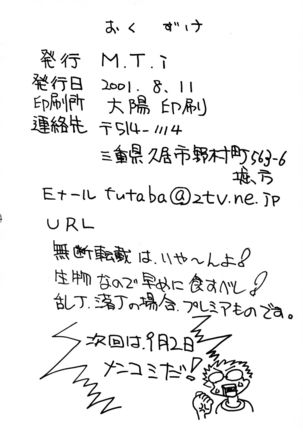 おくづけ
発行 M.T.i
発行日 2001.8.11
印刷所 大陽印刷
連絡先 〒514-1114
三重県久居市野村町563-6
堀方
Eメール futaba@ztv.ne.jp
URL
無断転載は、いや〜んよ!
生物なので早めに食すべし!
乱丁、落丁の場合、プレミアものです。
次回は、9月2日
メンコミだ!